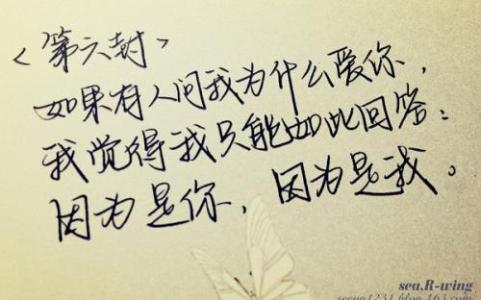 ＜第六封＞
如果有人问我为什么爱你，
我觉得我只能如此回答：
因为是你，因为是我。
sea.R-wing